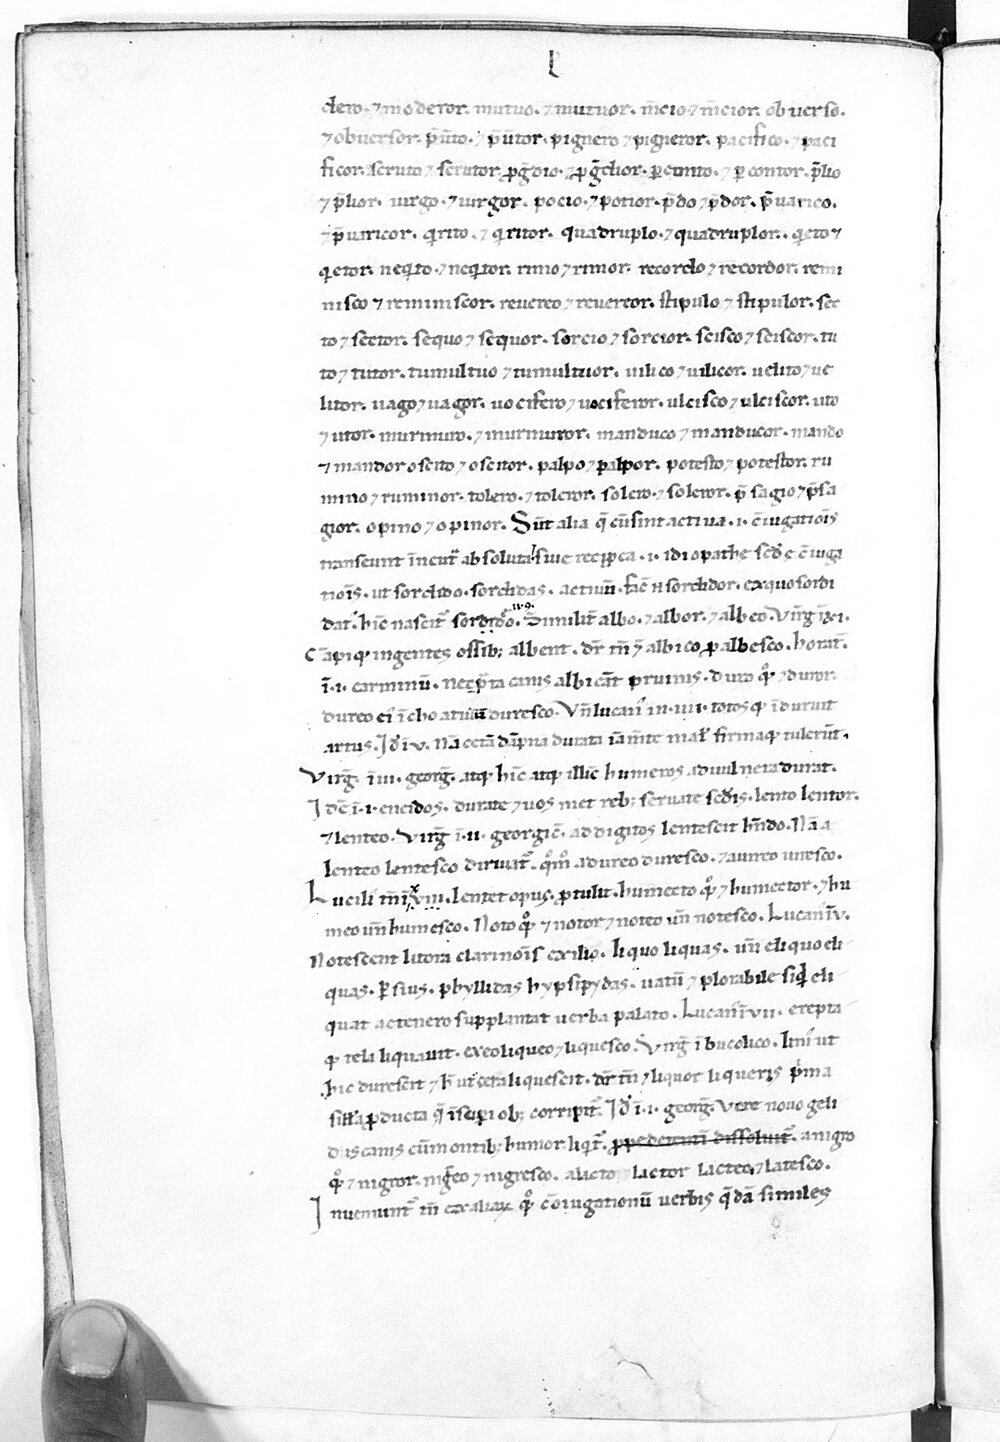 L
dero. ⁊ moderor. mutuo. ⁊ mutuor. m̄cio ⁊ m̄cior. obuerso.
⁊ obuersor. p̄uĩto. ⁊ p̄uĩtor. pignero ⁊ pigneror. pacifico. ⁊ paci
ficor. scruto ⁊ scrutor. ⁊ p̄lio
⁊ p̄lior. uirgo. ⁊ uirgor. pocio. ⁊ potior. p̄do ⁊ p̄dor. p̄uarico.
⁊ p̄uaricor. q̇rito. ⁊ q̇ritor. quadruplo. ⁊ quadruplor. q̇eto ⁊
q̇etor. neq̇to. ⁊ neq̇tor. rimo ⁊ rimor. recordo ⁊ recordor. remi
nisco ⁊ reminiscor. reuereo ⁊ reuereor. stipulo ⁊ stipulor. sec
to ⁊ sector. sequo ⁊ sequor. sorcio ⁊ sorcior. scisco ⁊ sciscor. tu
to ⁊ tutor. tumultuo ⁊ tumultuor. uilico ⁊ uilicor. uelito ⁊ ue
litor. uago ⁊ uagor. uocifero ⁊ uociferor. ulcisco ⁊ ulciscor. uto
⁊ utor. murmuro. ⁊ murmuror. manduco ⁊ manducor. mando
⁊ mandor oscito ⁊ oscitor. palpo ⁊ palpor. potesto ⁊ potestor. ru
mino ⁊ ruminor. tolero. ⁊ toleror. solero. ⁊ soleror. p̄sagio ⁊ p̄sa
gior. opino ⁊ opinor. Sūt alia q̄ cū sint actiua .i. c̄iugatiōis
transeunt in absoluta siue recip̱ca .i. idiopathe sc̄de c̄iuga
tiōis. ut sordido. sordidas. actiuū. sordidor. ex quo sordi
dat. hīc nascit᷑ sordido. Similit᷑ albo. ⁊ albor. ⁊ albeo. Virg̃ ĩ xi.
Cāpiq; ingentes ossib; albent. dr̄ tñ ⁊ albico, p albesco. horat᷑.
ĩ .i. carminū. nec p̄ta canis albicāt pruinis. duro qͦ; ⁊ duror.
dureo ei ĩchoatiuū duresco. Vñ lucañ in .iiii. totosq; ĩduruit
artus. Id̃ ĩ v. firmaq; tulerūt.
Virg̃. ĩ iii. georg̃. atq; hīc atq; illīc humeros ad uulnera durat.
Idē ĩ .i. eneidos. durate ⁊ uos met reb; seruate sc̄dis. lento lentor.
⁊ lenteo. Virg̃ ĩ .ii. georgic̃. ad digitos lentescit hñdo. Nā a
lenteo lentesco diriuat᷑. qͦm̊ a dureo duresco. ⁊ a uireo uiresco.
Lucili tñ ĩ xviii. lentet opus. protulit. humecto qͦ; ⁊ humector. ⁊ hu
meo uñ humesco. Noto qͦ; ⁊ notor ⁊ noteo uñ notesco. Lucañ ĩ v.
Notescent litora clari nōis exilio. liquo liquas. uñ eliquo eli
quas. Persius. phyllidas hypsipydas. uatū ⁊ plorabile siqd eli
quat ac tenero supplantat uerba palato. Lucañ ĩ vii. erepta
q; tela liquauit. ex eo liqueo ⁊ liquesco. Virg̃ ĩ bucolico. limꝰ ut
hic durescit ⁊ h̃ ut cera liquescit. dr̄ tñ ⁊ liquor liqueris p̄ma
sill̃a p̱ducta q̄ ĩ sup̱iob; corripit᷑. Id̃ ĩ .i. georg̃. Vere nouo geli
dus canis cū montib; humor liq̇t᷑. dissoluit᷑. a nigro
qͦ; ⁊ nigror. nigreo ⁊ nigresco. a lacto ⁊ lactor lacteo, ⁊ latesco.
Inueniunt᷑ tñ ex aliaꝝ qͦ; c̄iugationū uerbis q̄dā similes